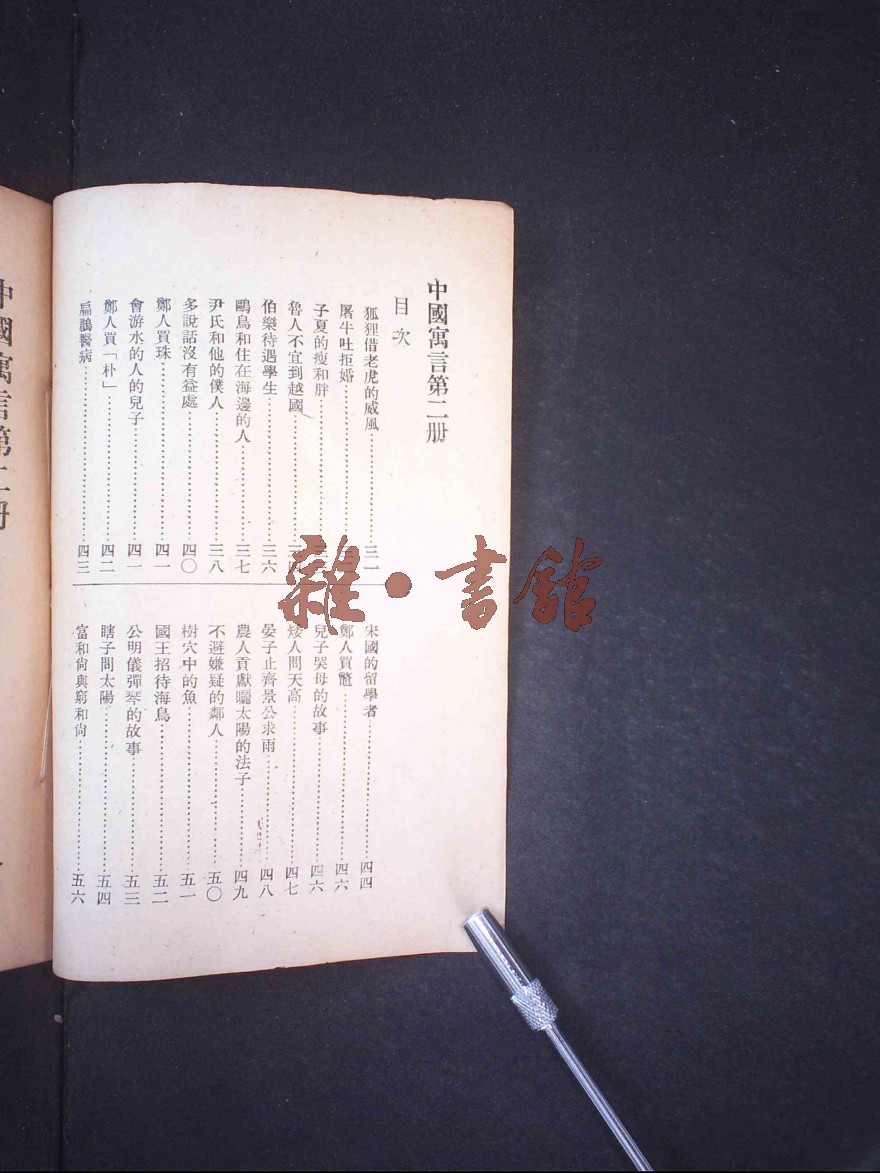 中國寓言第二册
目次
狐狸借老虎的威風……三一
屠牛吐拒婚……
子夏的瘦和胖……
魯人不宜到越國……三
伯樂待遇學生……三六
鷗鳥和住在海邊的人……三七
尹氏和他的僕人……三八
多說話沒有益處……四〇
鄭人買珠……四一
會游水的人的兒子……四一
鄭人買「朴」……四二
扁鵲醫病……四三
宋國的留學者……四四
鄭人買鼈……四六
兒子哭母的故事……四六
矮人問天高……四七
晏子止齊景公求雨……四八
農人貢獻曬太陽的法子……四九
不避嫌疑的鄰人……五〇
樹穴中的魚……五一
國王招待海鳥……五二
公明儀彈琴的故事……五三
瞎子問太陽……五四
富和尙與窮和尙……五六
中國寓言第二册
雜·書館